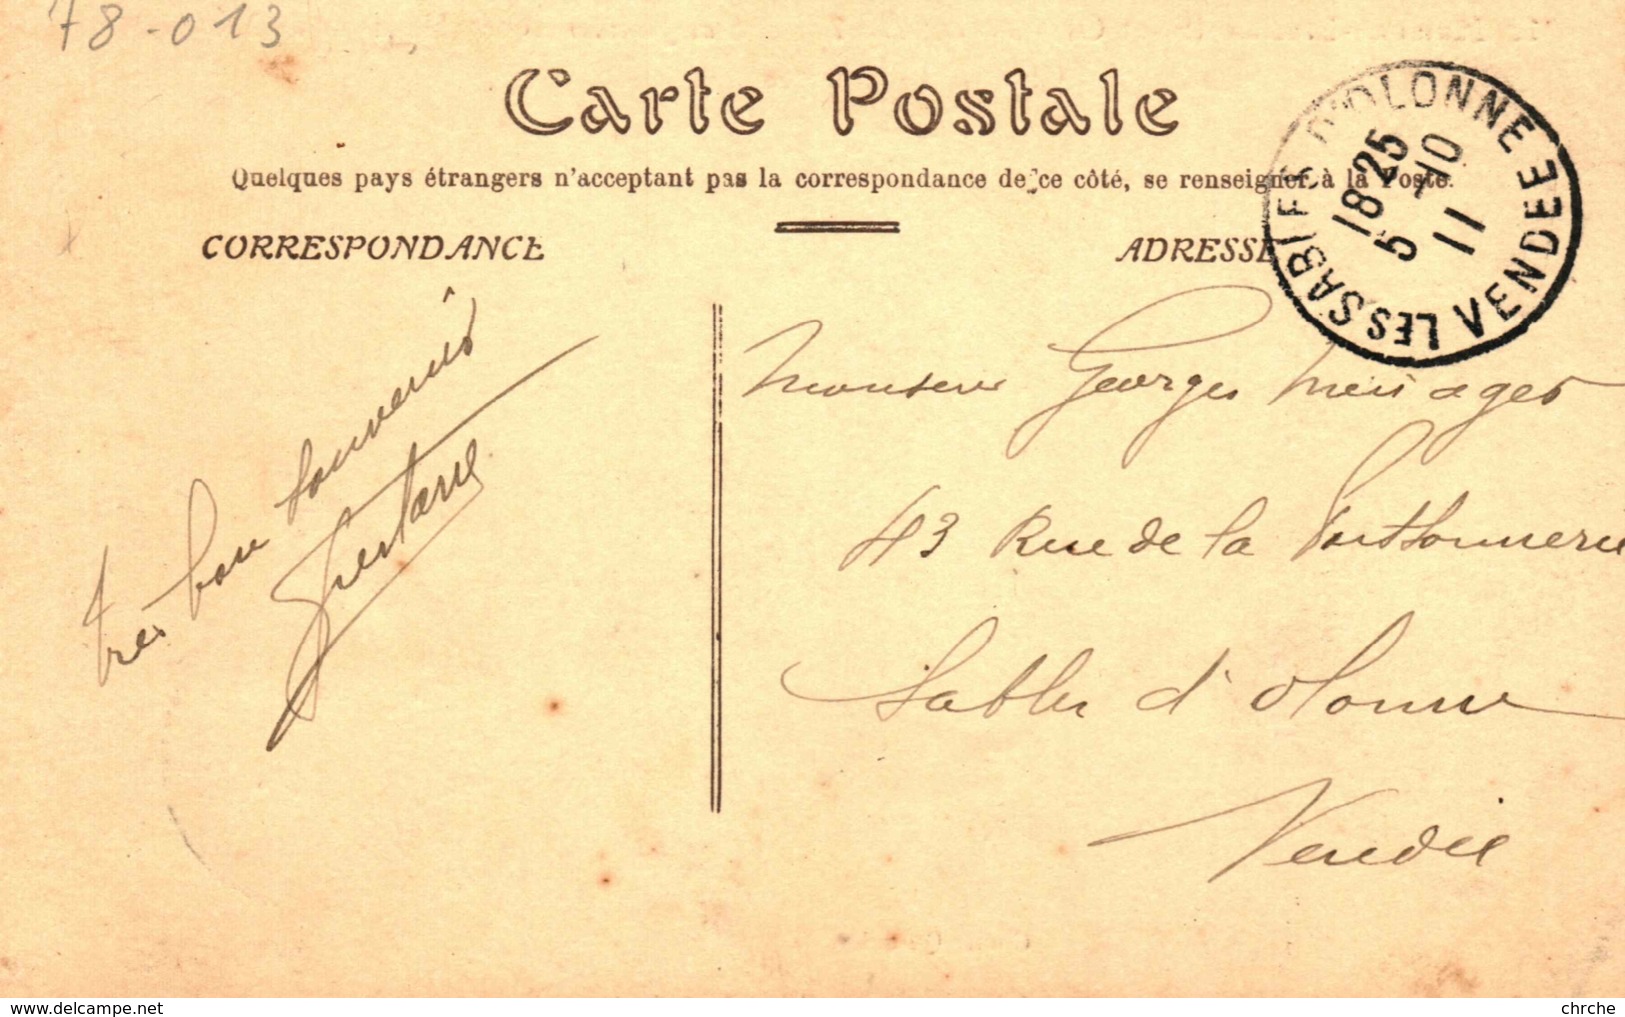 78-013
Carte Postale
Quelques pays étrangers n'acceptant pas la correspondance de ce côté, se renseigner à la Poste.
CORRESPONDANCE
ADRESSE
LES SABLES D'OLONNE
VENDEE
18 25
5 -10
11
Tres bon souvenir
Monsieur Georges
43 Rue de la
Sables d'Olonne
Vendée
www.delcampe.net
chrche